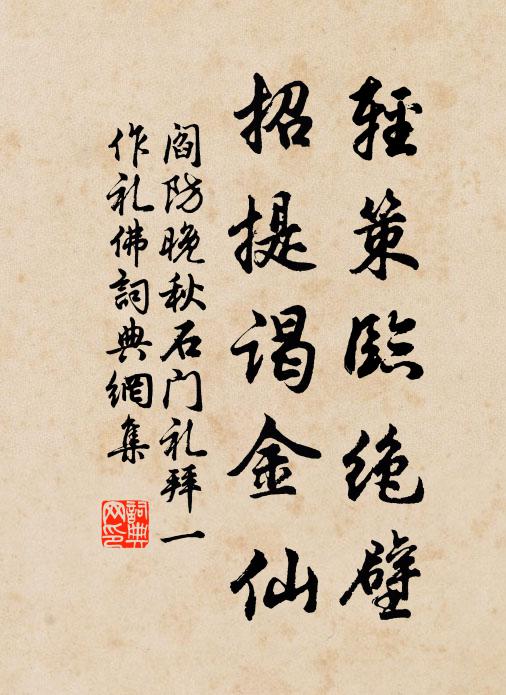 輕策臨绝壁
招提谒金仙
阎防晚秋石门礼拜一
作礼佛詞典網集
詞典网印